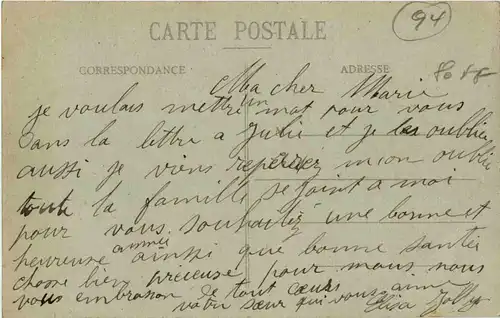 94
CARTE POSTALE
CORRESPONDANCE
ADRESSE
Ma cher Marie
je voulais mettre un mot pour vous
dans la lettre a Julie et je les oublie
aussi je viens reparer mon oublie
toute la famille se joint a moi
pour vous souhaitez une bonne et
heureuse année ainsi que bonne santée
choose bien precieuse pour nous nous
vous embrasson de tout cœurs
votre sœur qui vous aime
Elisa